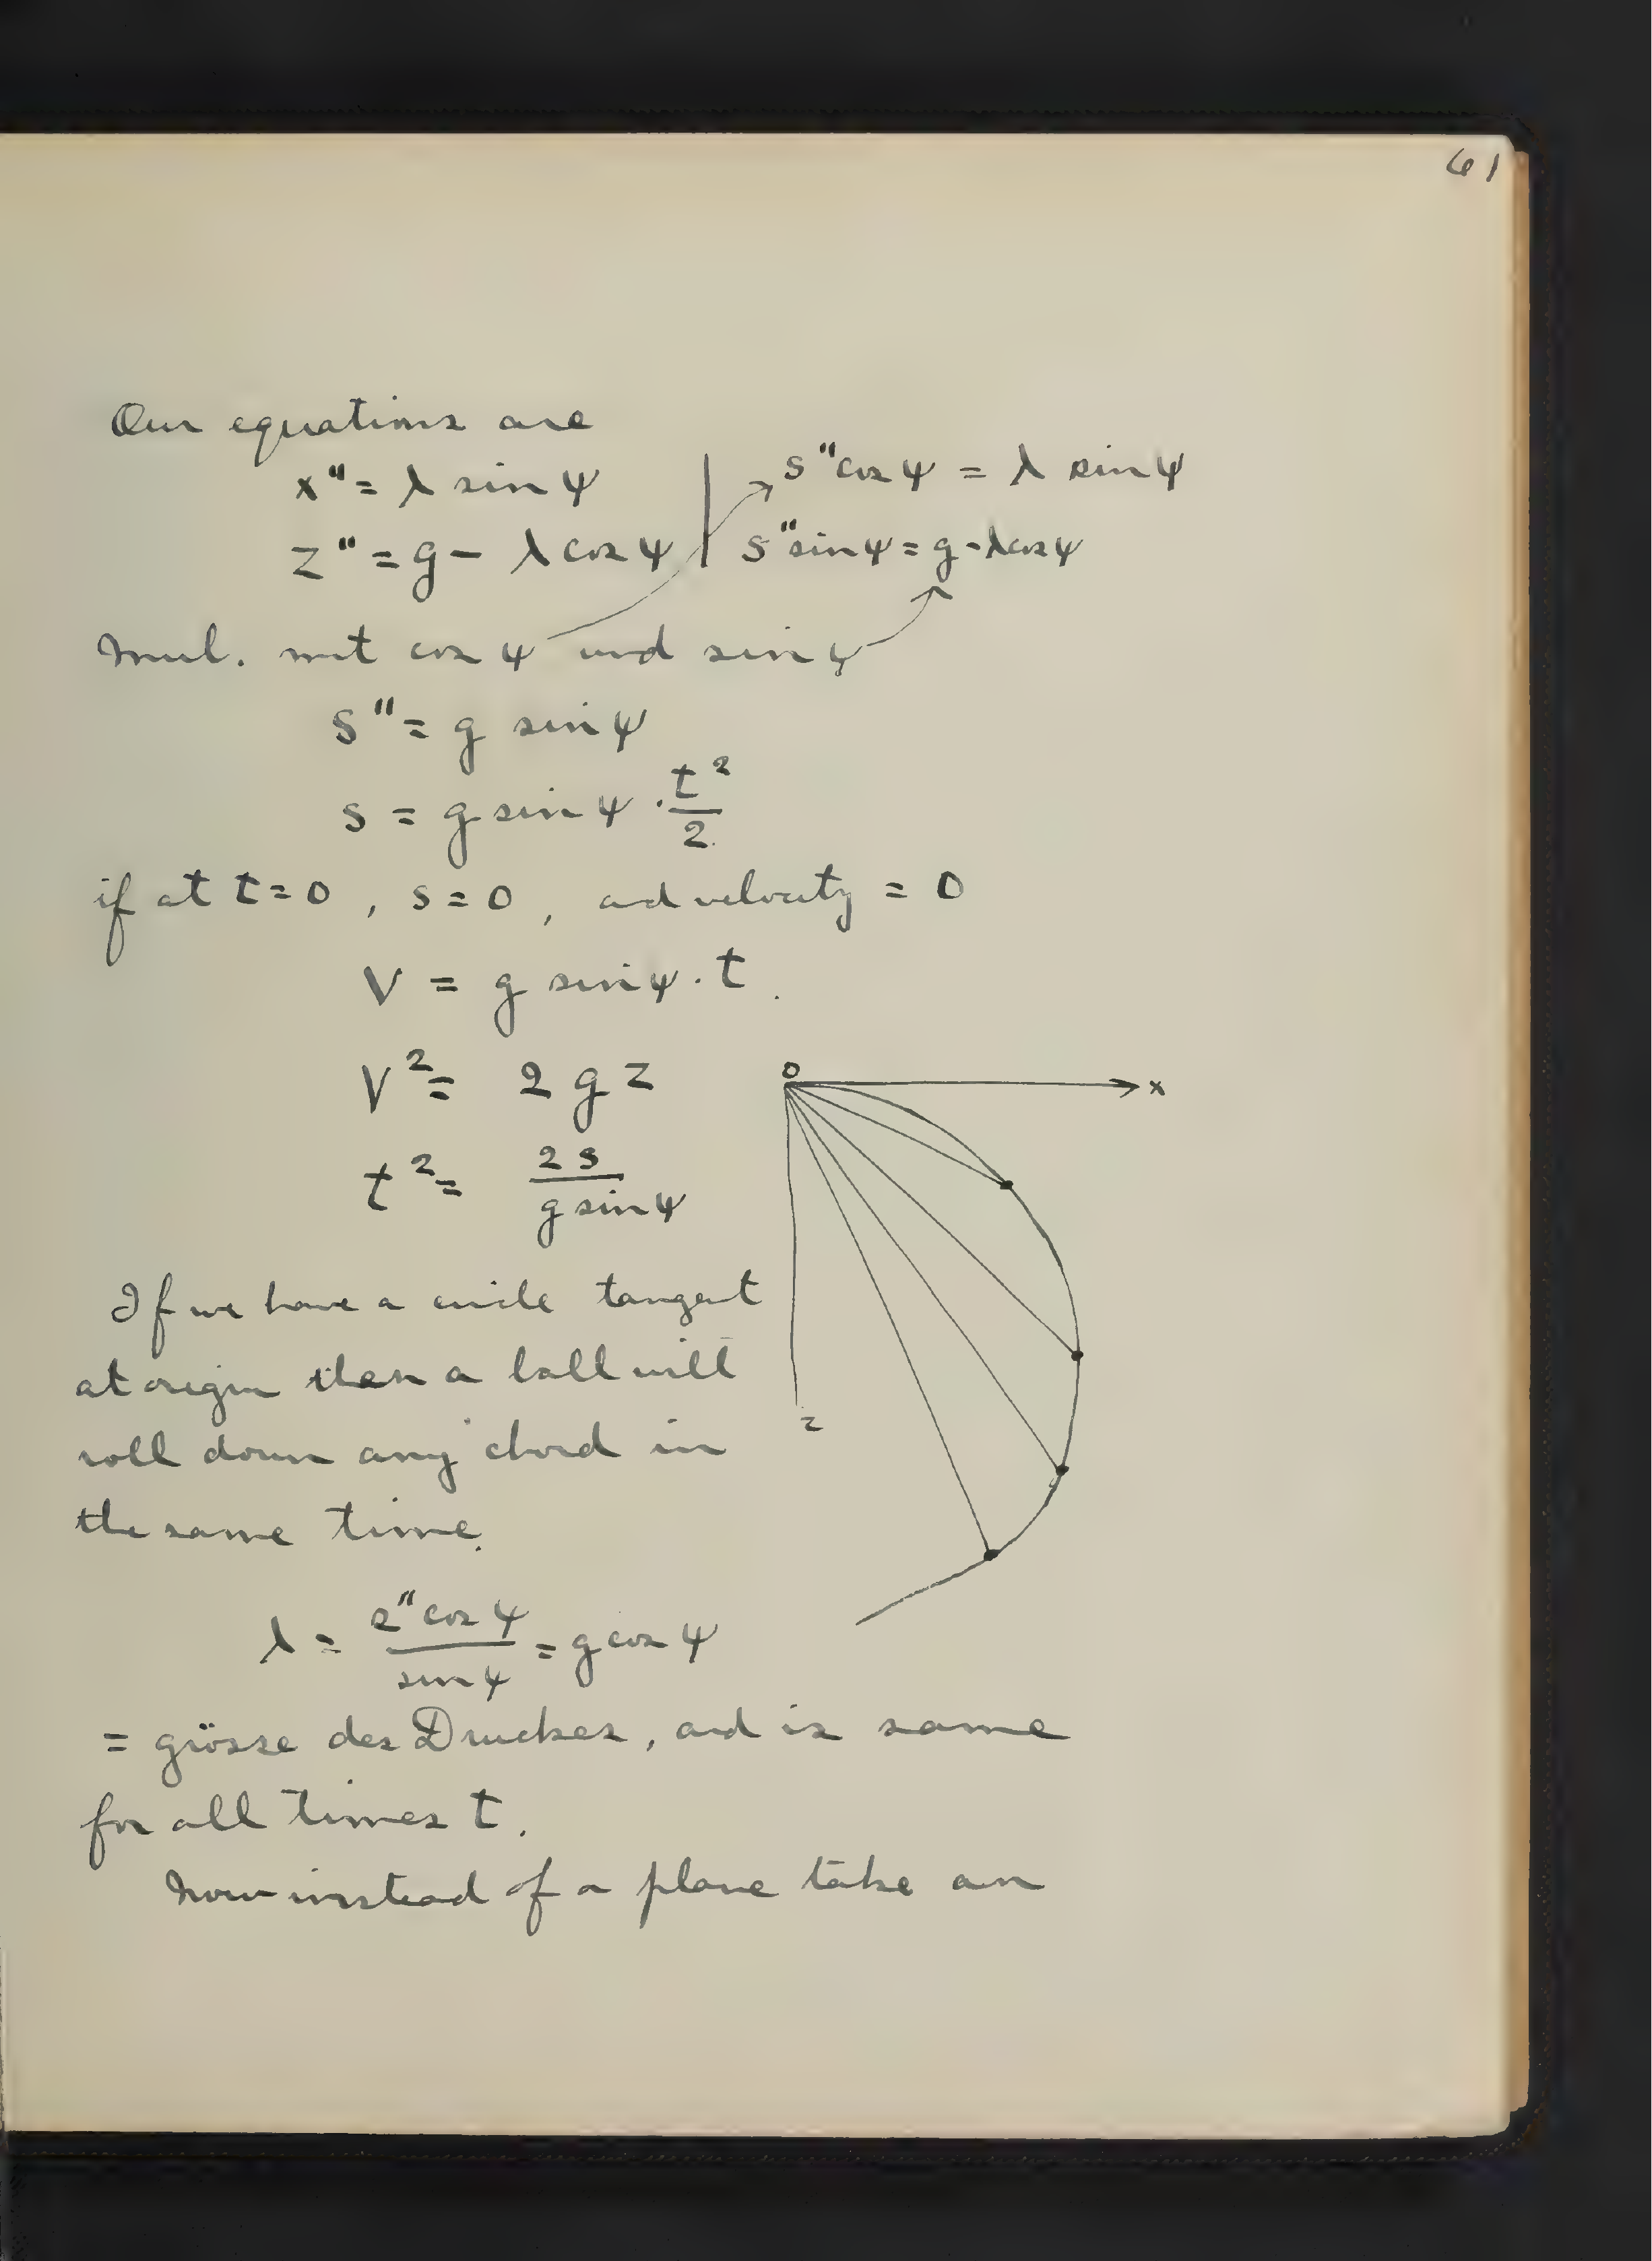 61
Our equations are
x" = λ sin ψ | s" cos ψ = λ sin ψ
z" = g - λ cos ψ | s" sin ψ = g - λ cos ψ
Mul. mit cos ψ und sin ψ
s" = g sin ψ
s = g sin ψ · t²/2
if at t = 0, s = 0, and velocity = 0
V = g sin ψ · t.
V² = 2 g z
t² = 2s/(g sin ψ)
0
x
z
If we have a circle tangent
at origin then a ball will
roll down any chord in
the same time.
λ = s" cos ψ / sin ψ = g cos ψ
= grösse des Druckes, and is same
for all times t.
Now instead of a plane take an